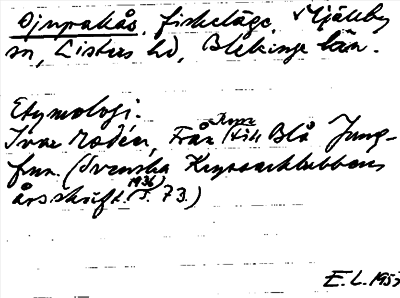 Djupakås, fiskeläge, Mjällby
sn, Listers hd, Blekinge län.
Etymologi.
Ivar Modéer, Från Kura till Blå Jung-
frun. (Svenska Kryssarklubbens
årsskrift. 1936 S. 73.)
E.L. 1957